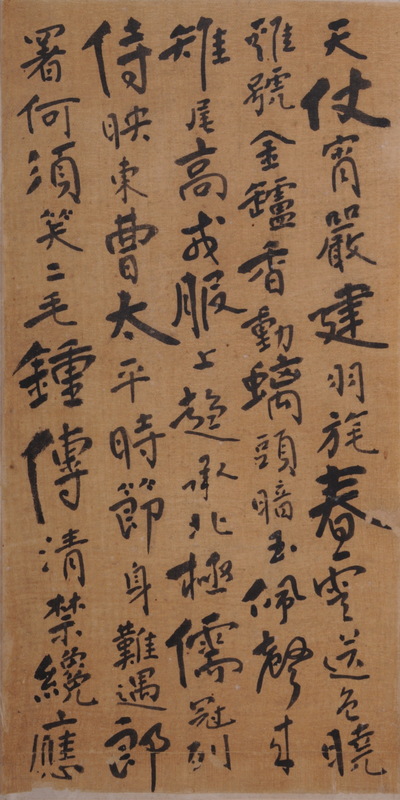 天仗宵嚴建羽旄春雲送色曉
雞號金鑪香動螭頭暗玉佩聲來
雉尾高戎服上趨承北極儒冠列
侍映東曹太平時節身難遇郎
署何須笑二毛鍾傳清禁纔應